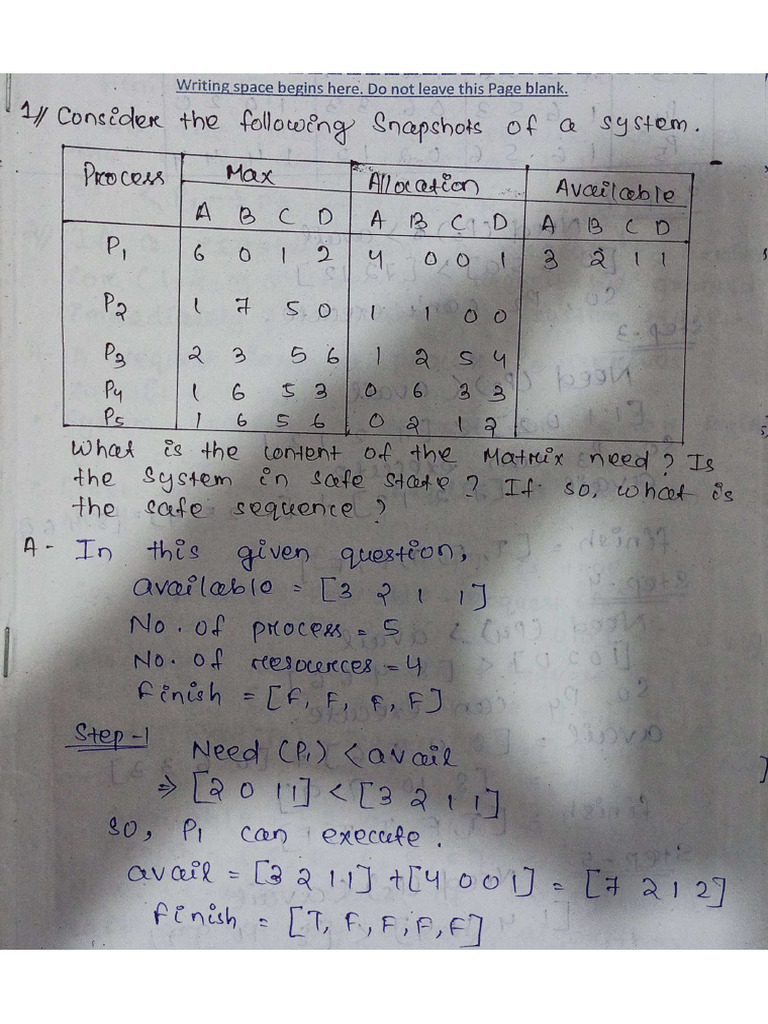 Writing space begins here. Do not leave this Page blank.
1// Consider the following Snapshots of a system.
Process Max Allocation Available
A B C D A B C D A B C D
P1 6 0 1 2 4 0 0 1 3 2 1 1
P2 1 7 5 0 1 1 0 0
P3 2 3 5 6 1 2 5 4
P4 1 6 5 3 0 6 3 3
P5 1 6 5 6 0 2 1 2
What is the content of the Matrix need? Is
the System in safe state? If so, what is
the safe sequence?
A - In this given question,
available = [3 2 1 1]
No. of process = 5
No. of resources = 4
Finish = [F, F, F, F]
Step-1
Need (P1) < avail
⇒ [2 0 1 1] < [3 2 1 1]
so, P1 can execute.
avail = [3 2 1 1] + [4 0 0 1] = [7 2 1 2]
Finish = [T, F, F, F, F]